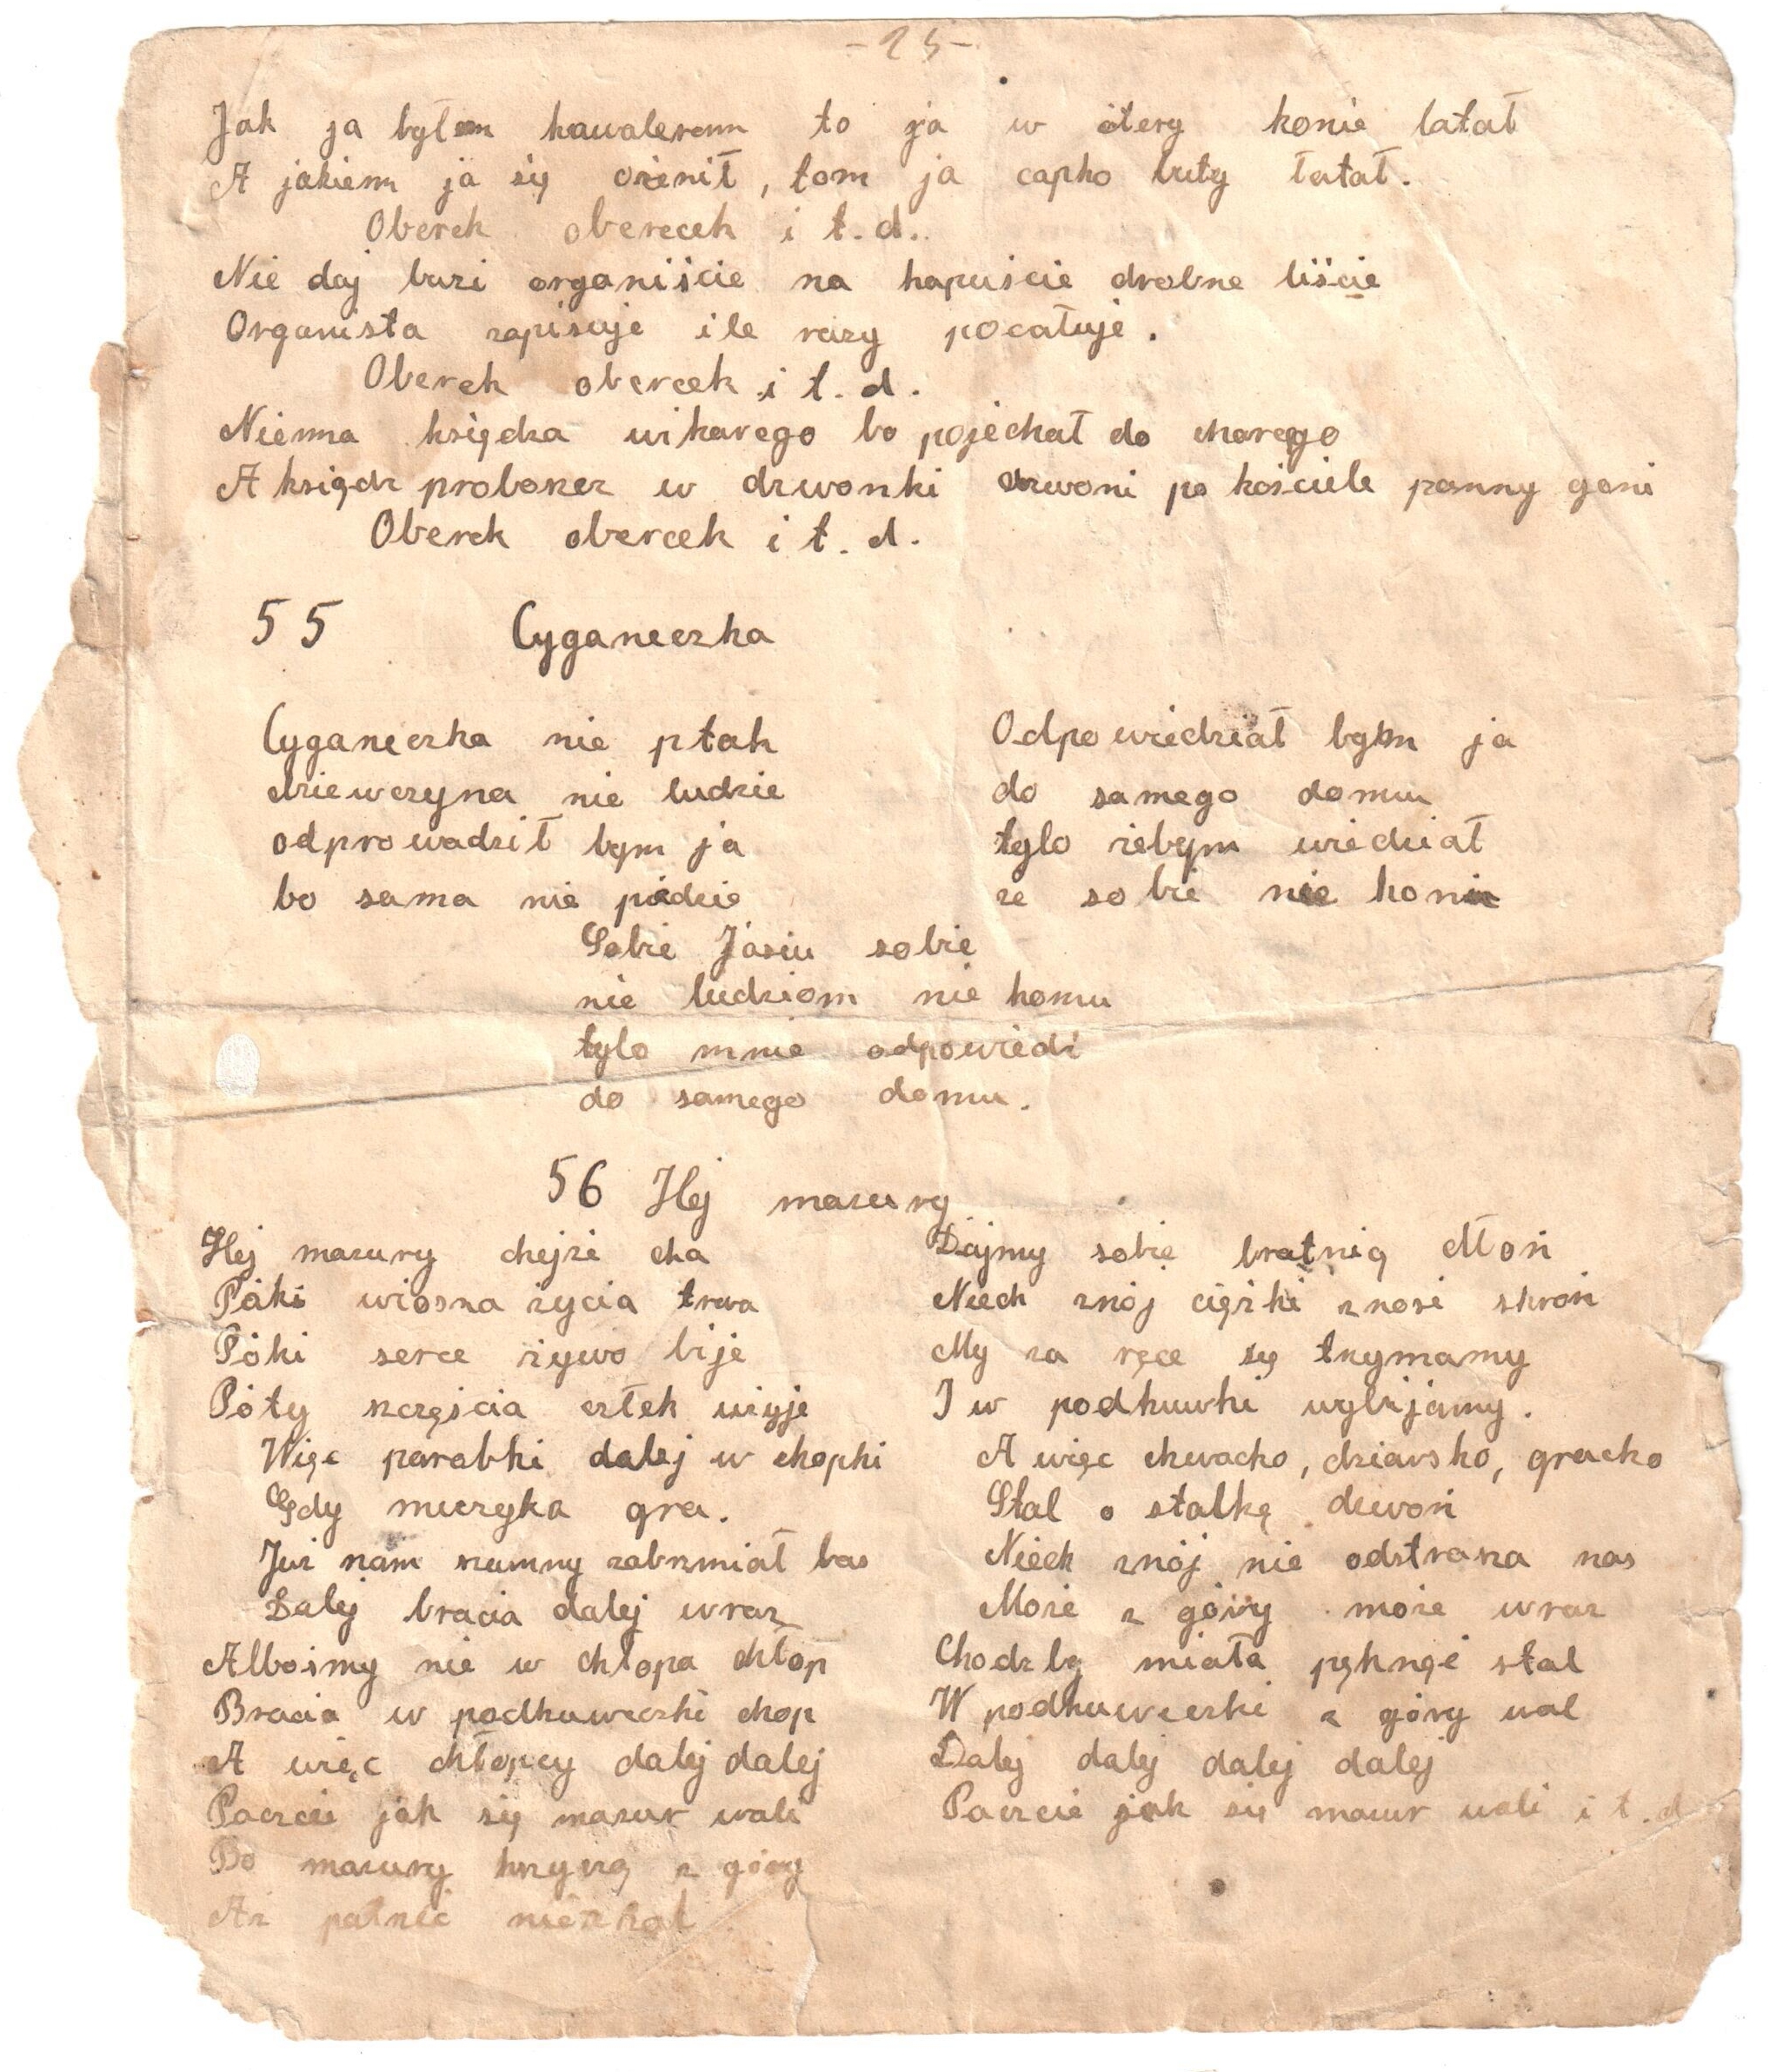 - 25 -
Jak ja byłem kawalerem to ja w śtery konie latał
A jakiem ja się ożenił, tom ja capko buty łatał.
Oberek oberecek i t. d..
Nie daj buzi organiście na kapuście drobne liście
Organista zapisuje ile razy pocałuje.
Oberek obercek i t. d.
Niema księdza wikarego bo pojechał do chorego
A ksiądz proboszcz w dzwonki dzwoni po kościele panny goni
Oberek obercek i t. d.
55 Cyganeczka
Cyganeczka nie ptak
dziewczyna nie ludzie
odprowadził bym ja
bo sama nie pódzie
Sobie Jasiu sobie
nie ludziom nie komu
tylo mnie odpowiedź
do samego domu.
Odpowiedział bym ja
do samego domu
tylo żebym wiedział
że sobie nie
56 Hej mazury
Hej mazury chejże cha
Póki wiosna życia trwa
Póki serce żywo bije
Póty szczęścia człek użyje
Więc parobki dalej w chopki
Gdy muzyka gra.
Już nam szumny zabrzmiał bas
Dalej bracia dalej wraz
Albośmy nie w chłopa chłop
Bracia w podkuweczki chop
A więc chłopcy dalej dalej
Paczcie jak się mazur wali
Bo mazury krzyczą z góry
Aż patrzeć nie żal
Dajmy sobie bratnią dłoń
Niech znój ciężki znosi skroń
My za ręce się trzymamy
I w podkuwki wybijamy.
A więc chwacko, dziarsko, gracko
Stal o stalkę dzwoń
Niech znój nie odstrasza nas
Może z góry może wraz
Chodzby miała pęknąć stal
W podkuweczki z góry wal
Dalej dalej dalej dalej
Paczcie jak się mazur wali i t. d